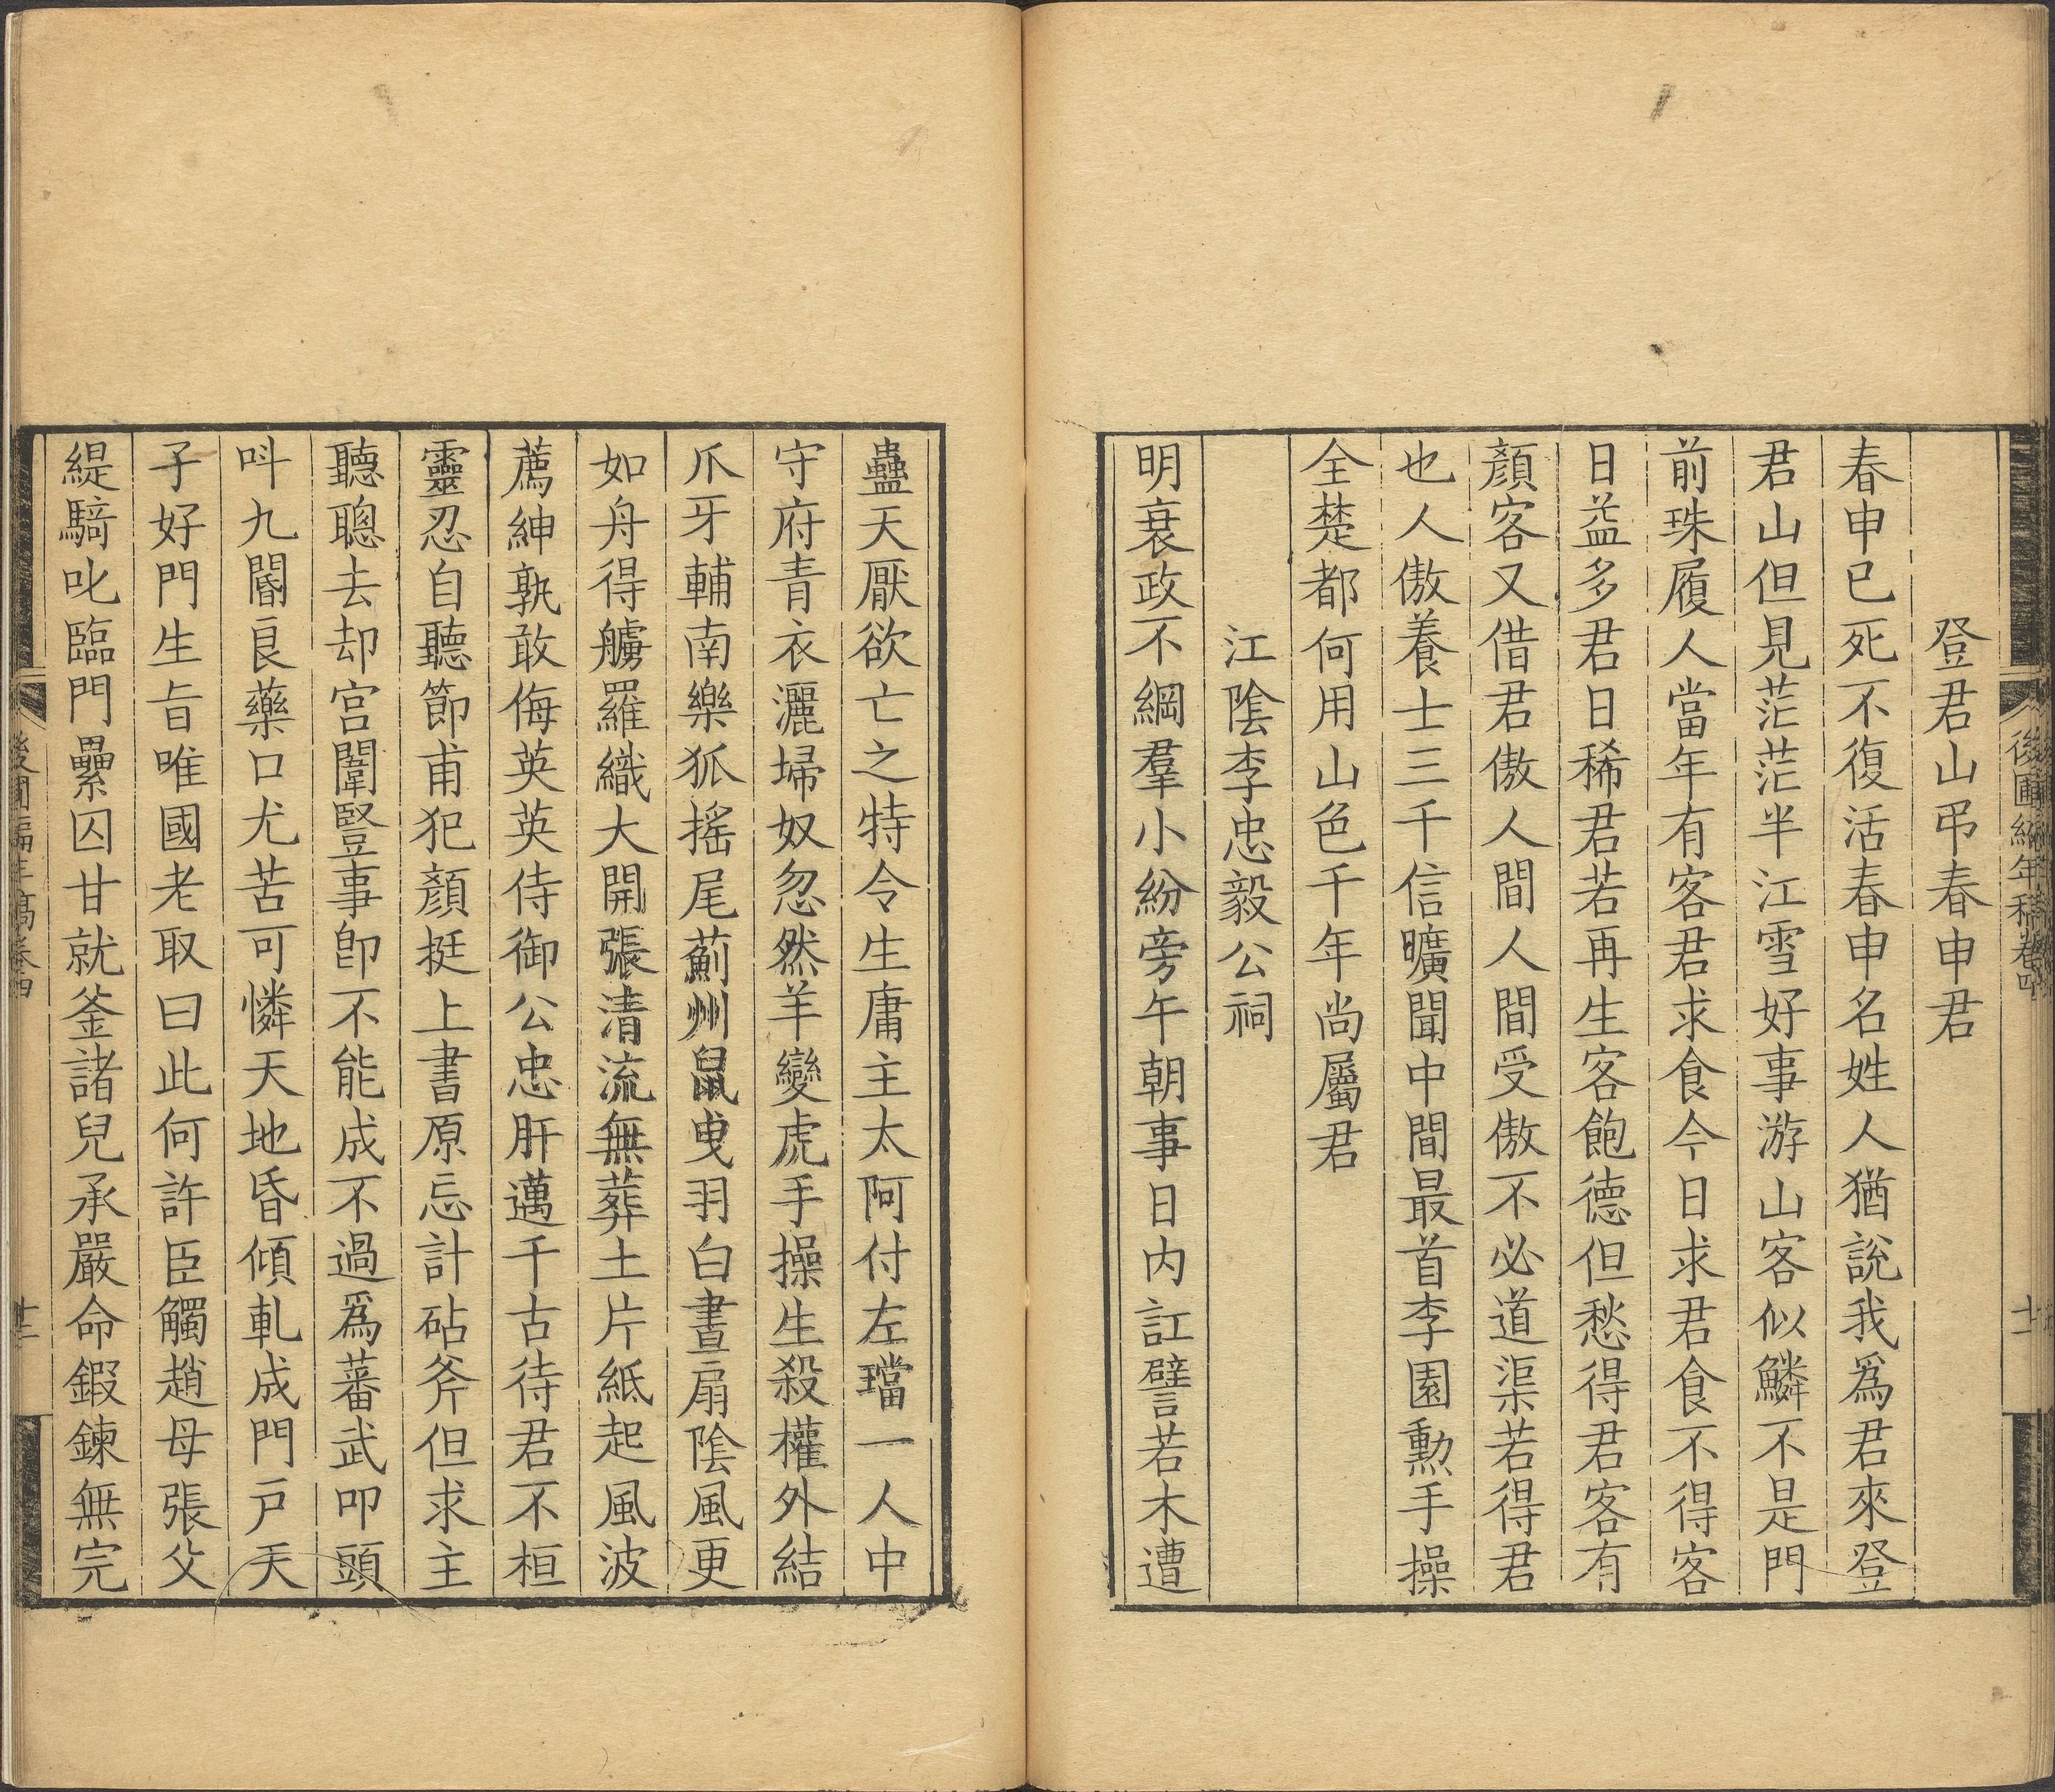 後圃編年稿卷四
十一
登君山弔春申君
春申已死不復活春申名姓人猶說我爲君來登
君山但見茫茫半江雪好事游山客似鱗不是門
前珠履人當年有客君求食今日求君食不得客
日益多君日稀君若再生客飽德但愁得君客有
顏客又借君傲人間人間受傲不必道渠若得君
也人傲養士三千信曠聞中間最首李園勲手操
全楚都何用山色千年尚屬君
江陰李忠毅公祠
明衰政不綱羣小紛旁午朝事日内訌譬若木遭
蠱天厭欲亡之特令生庸主太阿付左璫一人中
守府青衣灑埽奴忽然羊變虎手操生殺權外結
爪牙輔南樂狐搖尾薊州鼠曳羽白晝扇陰風更
如舟得艣羅織大開張清流無葬土片紙起風波
薦紳孰敢侮英英侍御公忠肝邁千古待君不桓
靈忍自聽節甫犯顏挺上書原忘計砧斧但求主
聽聰去却宫闈豎事卽不能成不過爲蕃武叩頭
呌九閽良藥口尤苦可憐天地昏傾軋成門戸天
子好門生旨唯國老取曰此何許臣觸趙母張父
緹騎叱臨門纍囚甘就釜諸兒承嚴命鍜鍊無完
後圃編年稿卷四
十二